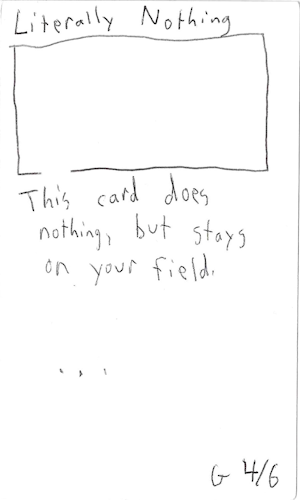 Literally Nothing
This card does
nothing, but stays
on your field.
...
G 4/6